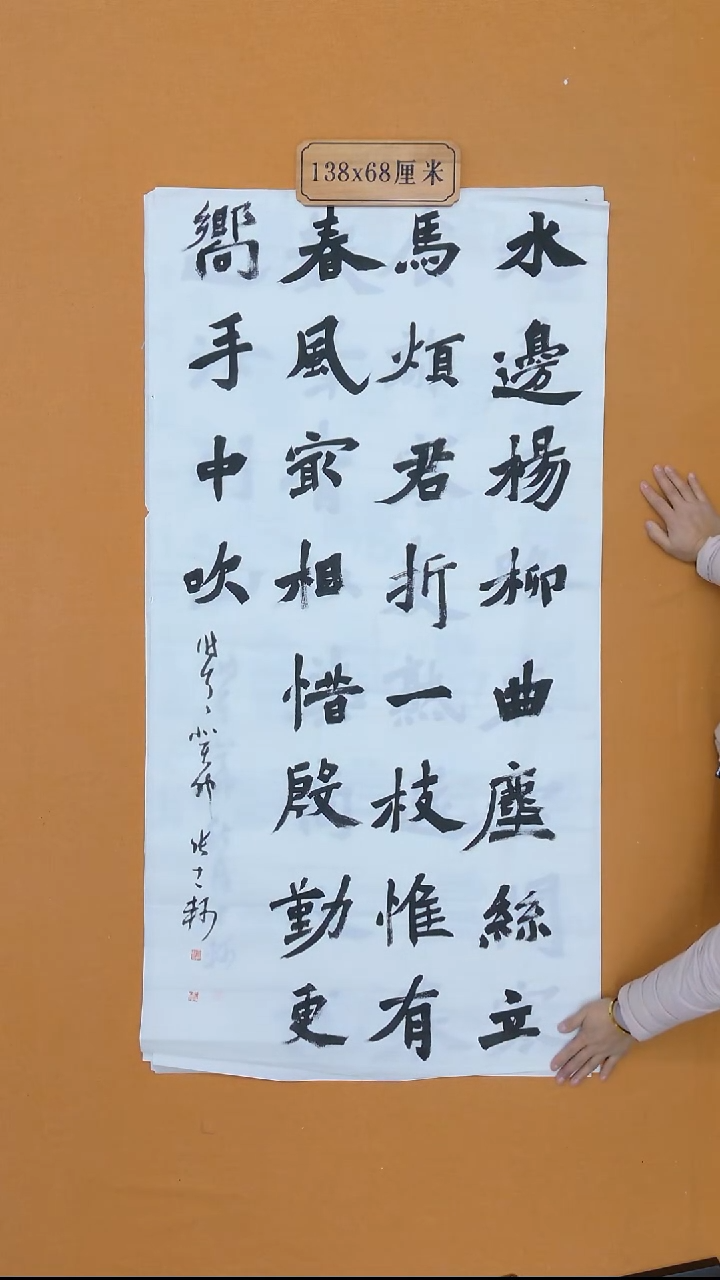 138x68厘米
水邊楊柳曲塵絲立
馬煩君折一枝惟有
春風最相惜殷勤更
嚮手中吹
癸卯